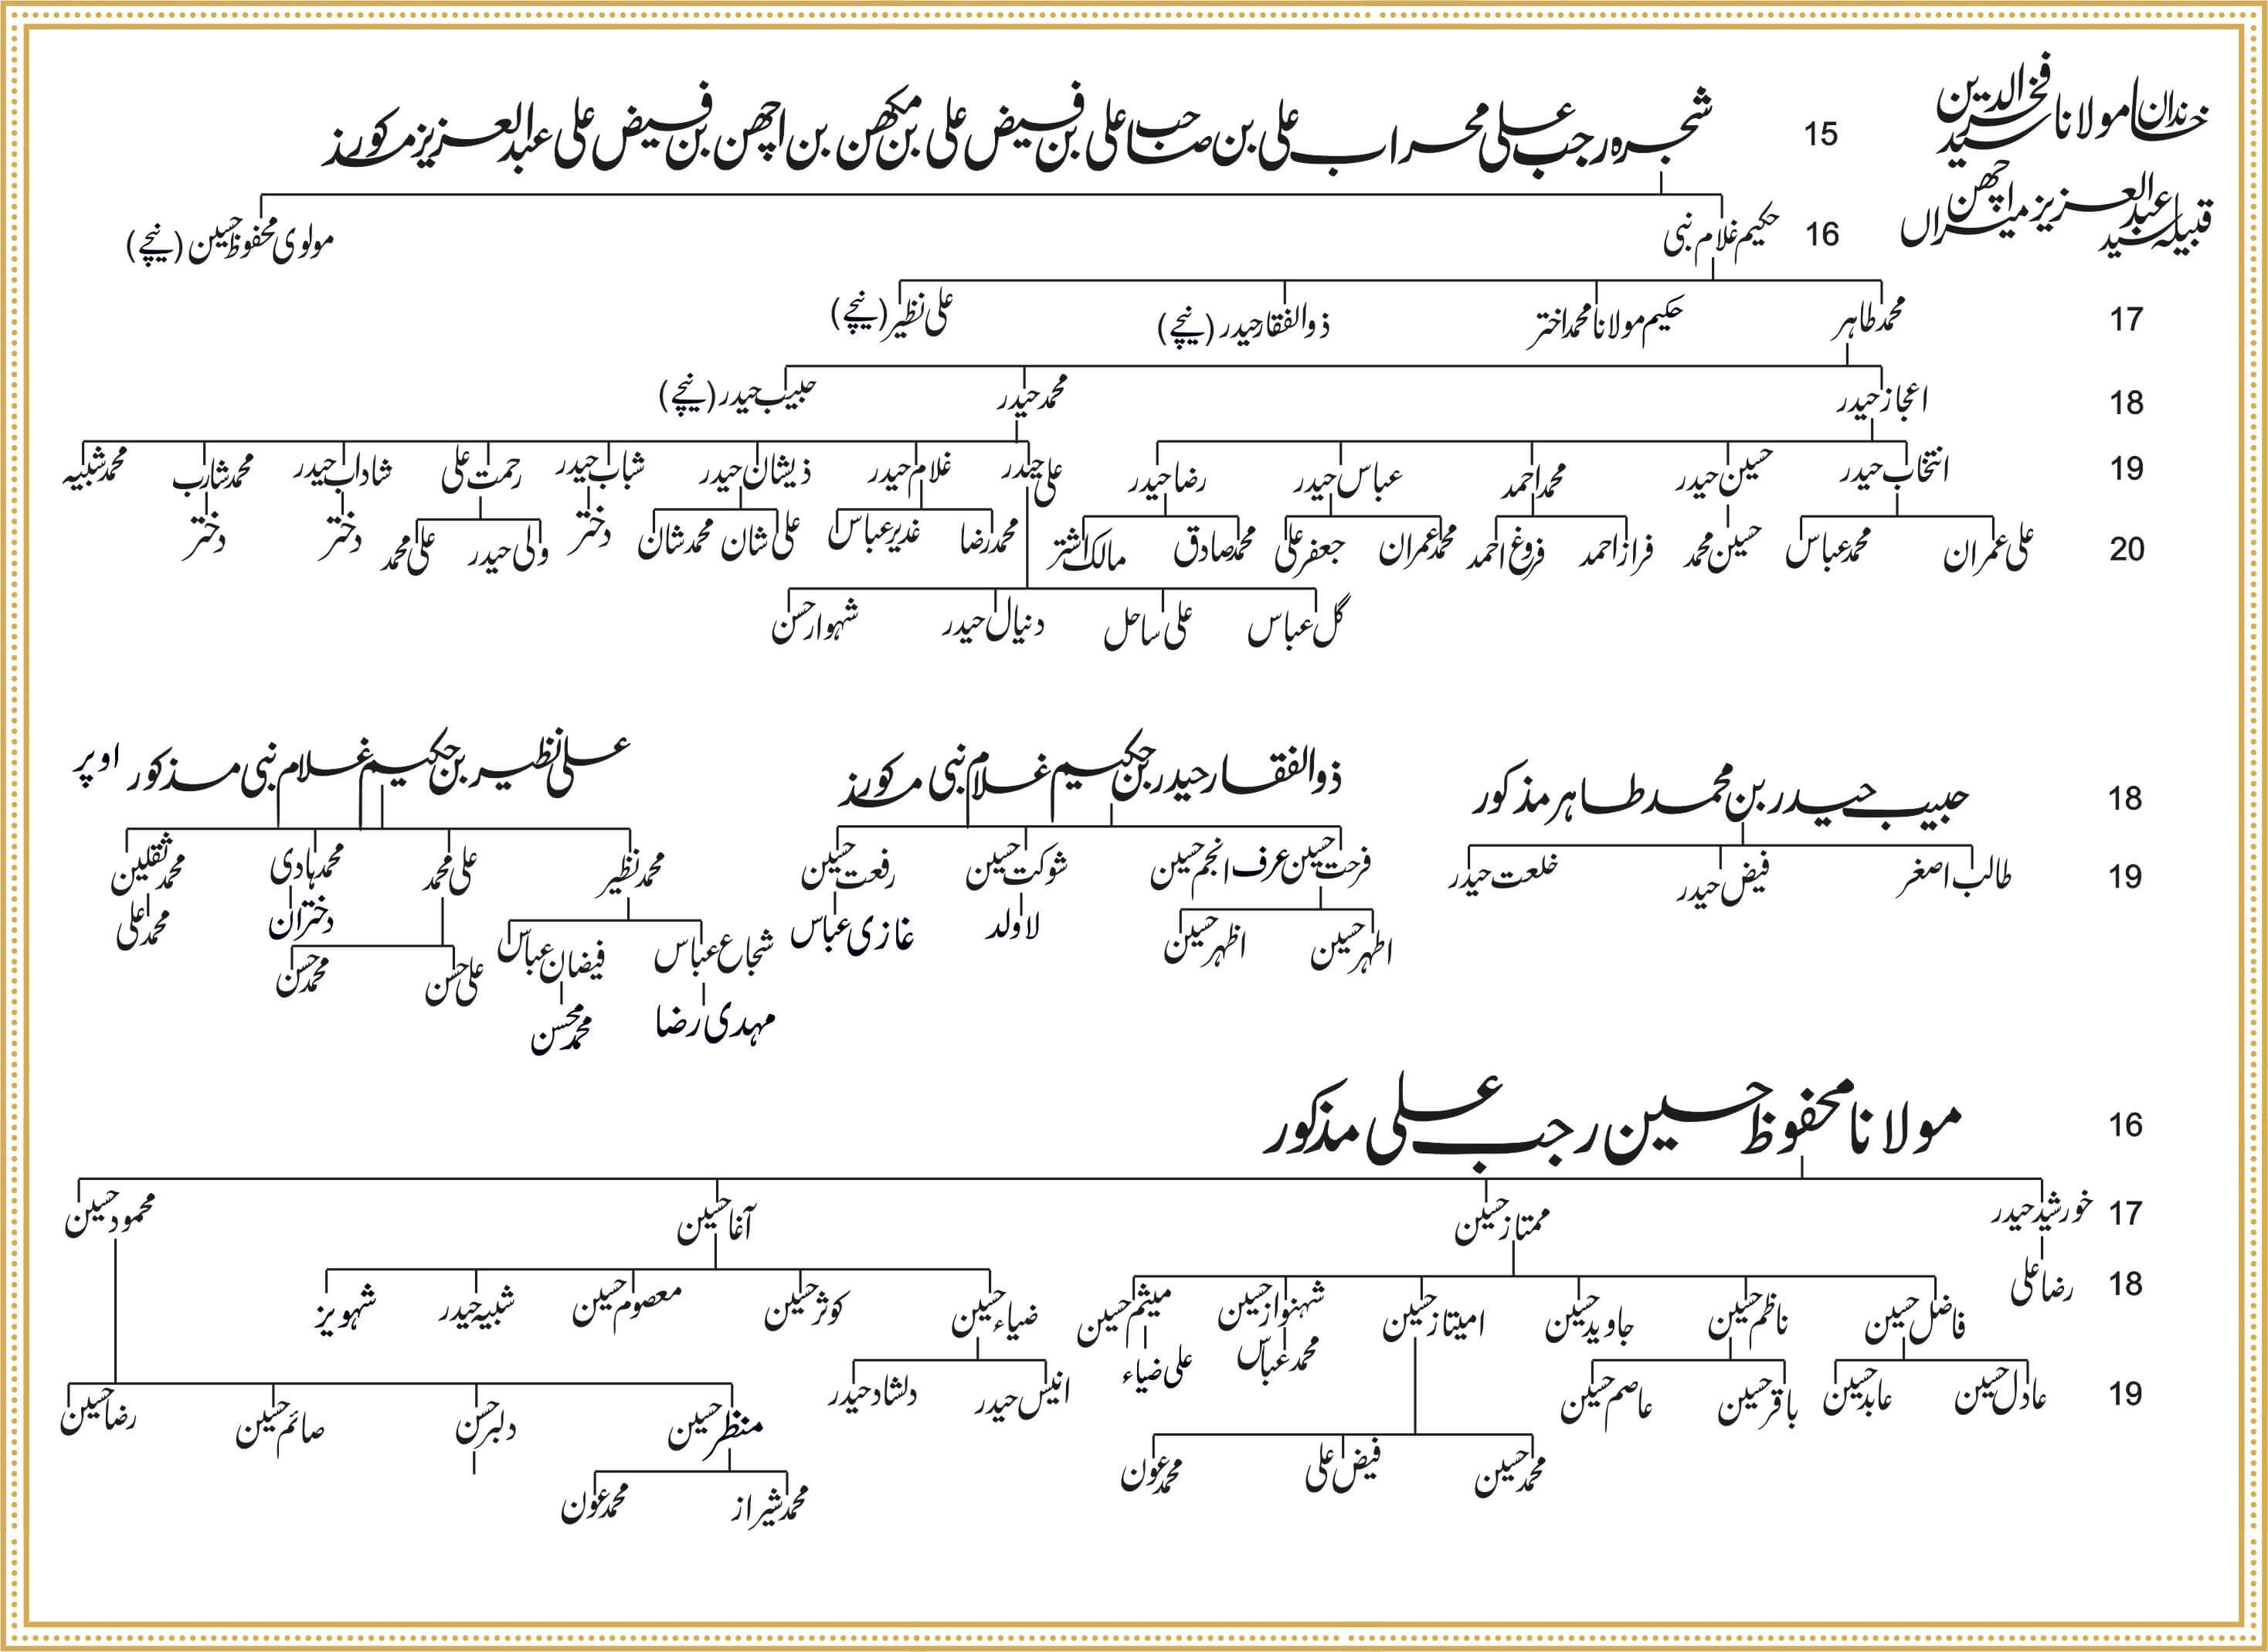 خاندان مولانا سید فخر الدین
قبیلہ سید عبدالعزیز اچھن میراں
15 شجرہ رجب علی محراب علی بن صاحب علی بن فیض علی بن مکھن بن اچھن بن فیض علی عبدالعزیز مذکور
16 حکیم غلام نبی مولوی محفوظ حسین (نیچے)
17 محمد طاہر حکیم مولانا محمد اختر ذوالفقار حیدر (نیچے) علی نظیر (نیچے)
18 اعجاز حیدر محمد حیدر حبیب حیدر (نیچے)
19 انتخاب حیدر حسین حیدر محمد احمد عباس حیدر رضا حیدر علی حیدر غلام حیدر ذیشان حیدر شباب حیدر رحمت علی شاداب حیدر محمد شارب محمد شبیہ
20 علی عمران محمد عباس حسین محمد فراز احمد فروغ احمد محمد عمران جعفر علی محمد صادق مالک اشتر محمد رضا غدیر عباس علی شان محمد شان دختر ولی حیدر علی محمد دختر دختر
گل عباس علی ساحل دنیال حیدر شہوار حسن
18 حبیب حیدر بن محمد طاہر مذکور
19 طالب اصغر فیض حیدر خلعت حیدر
ذوالفقار حیدر بن حکیم غلام نبی مذکور
فرحت حسین عرف انجم حسین شوکت حسین رفعت حسین
اطہر حسین اظہر حسین لاولد غازی عباس
علی نظیر بن حکیم غلام نبی مذکور اوپر
محمد نظیر علی محمد محمد ہادی محمد ثقلین
شجاع عباس فیضان عباس علی حسن محمد حسن دختران محمد علی
مہدی رضا محمد محسن
16 مولانا محفوظ حسین رجب علی مذکور
17 خورشید حیدر ممتاز حسین آغا حسین محمود حسین
18 رضا علی فاضل حسین ناظم حسین جاوید حسین امیتاز حسین شہنواز حسین میثم حسین ضیاء حسین کوثر حسین معصوم حسین شبیہ حیدر شہویز
19 عادل حسین عابد حسین باقر حسین عاصم حسین محمد عباس علی ضیاء انیس حیدر دلشاد حیدر منظر حسین دلبر حسن صائم حسین رضا حسین
محمد حسین فیض علی محمد عون محمد شیراز محمد عون